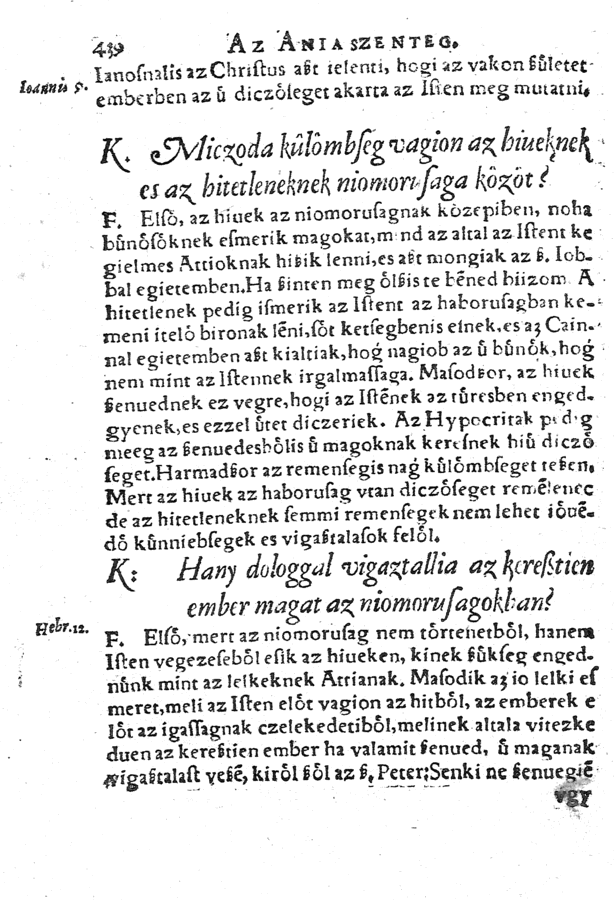 439 AZ ANIASZENTEG.
Ianoſnalis az Chriſtus aßt ielenti, hogi az vakon ßůletet
Ioannis 9.
emberben az ů diczőſeget akarta az Iſten meg mutatni.
K. Miczoda kůlőmbſeg vagion az hiueknek
es az hitetleneknek niomoruſaga kőzőt?
F. Elſő, az hiuek az niomoruſagnak kőzepiben, noha
bůnőſőknek eſmerik magokat, mind az altal az Iſtent ke
gielmes Attioknak hißik lenni, es aßt mongiak az ß. Iob-
bal egietemben, Ha ßinten meg őlßis te bēned biizom. A
hitetlenek pedig iſmerik az Iſtent az haboruſagban ke-
meni iteló bironak lēni, ſőt ketſegbenis eſnek, es az Cain-
nal egietemben aßt kialtiak, hoǵ nagiob az ů bůnők, hoǵ
nem mint az Iſtennek irgalmaſſaga. Maſodßor, az hiuek
ßenuednek ez vegre, hogi az Iſtēnek az tůresben enged-
gyenek, es ezzel ůtet diczeriek. Az Hypocritak pedig
meeg az ßenuedesbőlis ů magoknak kereſnek hiů diczó
ſeget. Harmadßor az remenſegis naǵ kůlőmbſeget teßen.
Mert az hiuek az haboruſag vtan diczőſeget remēlenec
de az hitetleneknek ſemmi remenſegek nem lehet iőuē-
dő kůnniebſegek es vigaßtalaſok felől.
K: Hany dologgal vigaztallia az kereßtien
ember magat az niomoruſagokban?
Hebr. 12.
F. Elſő, mert az niomoruſag nem tőrtenetből, hanem
Iſten vegezeſeből eſik az hiueken, kinek ßůkſeg enged-
nůnk mint az lelkeknek Attianak. Maſodik az io lelki eſ
meret, meli az Iſten előt vagion az hitből, az emberek e
lőt az igaſſagnak czelekedetiből, melinek altala vitezke
duen az kereßtien ember ha valamit ßenued, ů maganak
vigaßtalaſt veßē, kiről ßől az ß. Peter; Senki ne ßenuegiē
vgy